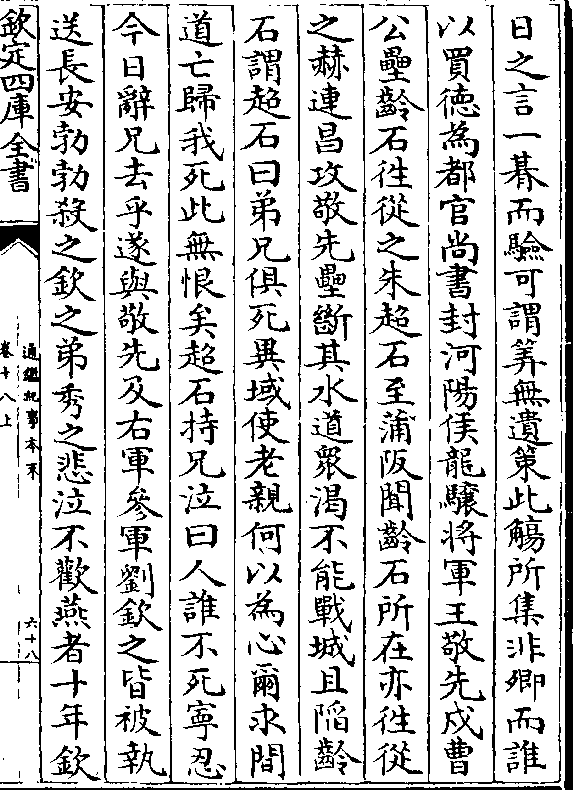 日之言一朞而驗可謂筭無遺策此觴所集非卿而誰
以買德為都官尚書封河陽侯龍驤將軍王敬先戍曹
公壘齡石往從之朱超石至蒲阪聞齡石所在亦往從
之赫連昌攻敬先壘斷其水道眾渴不能戰城且陷齡
石謂超石曰弟兄俱死異域使老親何以為心爾求間
道亡歸我死此無恨矣超石持兄泣曰人誰不死寧忍
今日辭兄去乎遂與敬先及右軍參軍劉欽之皆被執
送長安勃勃殺之欽之弟秀之悲泣不歡燕者十年欽
欽定四庫全書
通鑑紀事本末
卷十八上
六十八